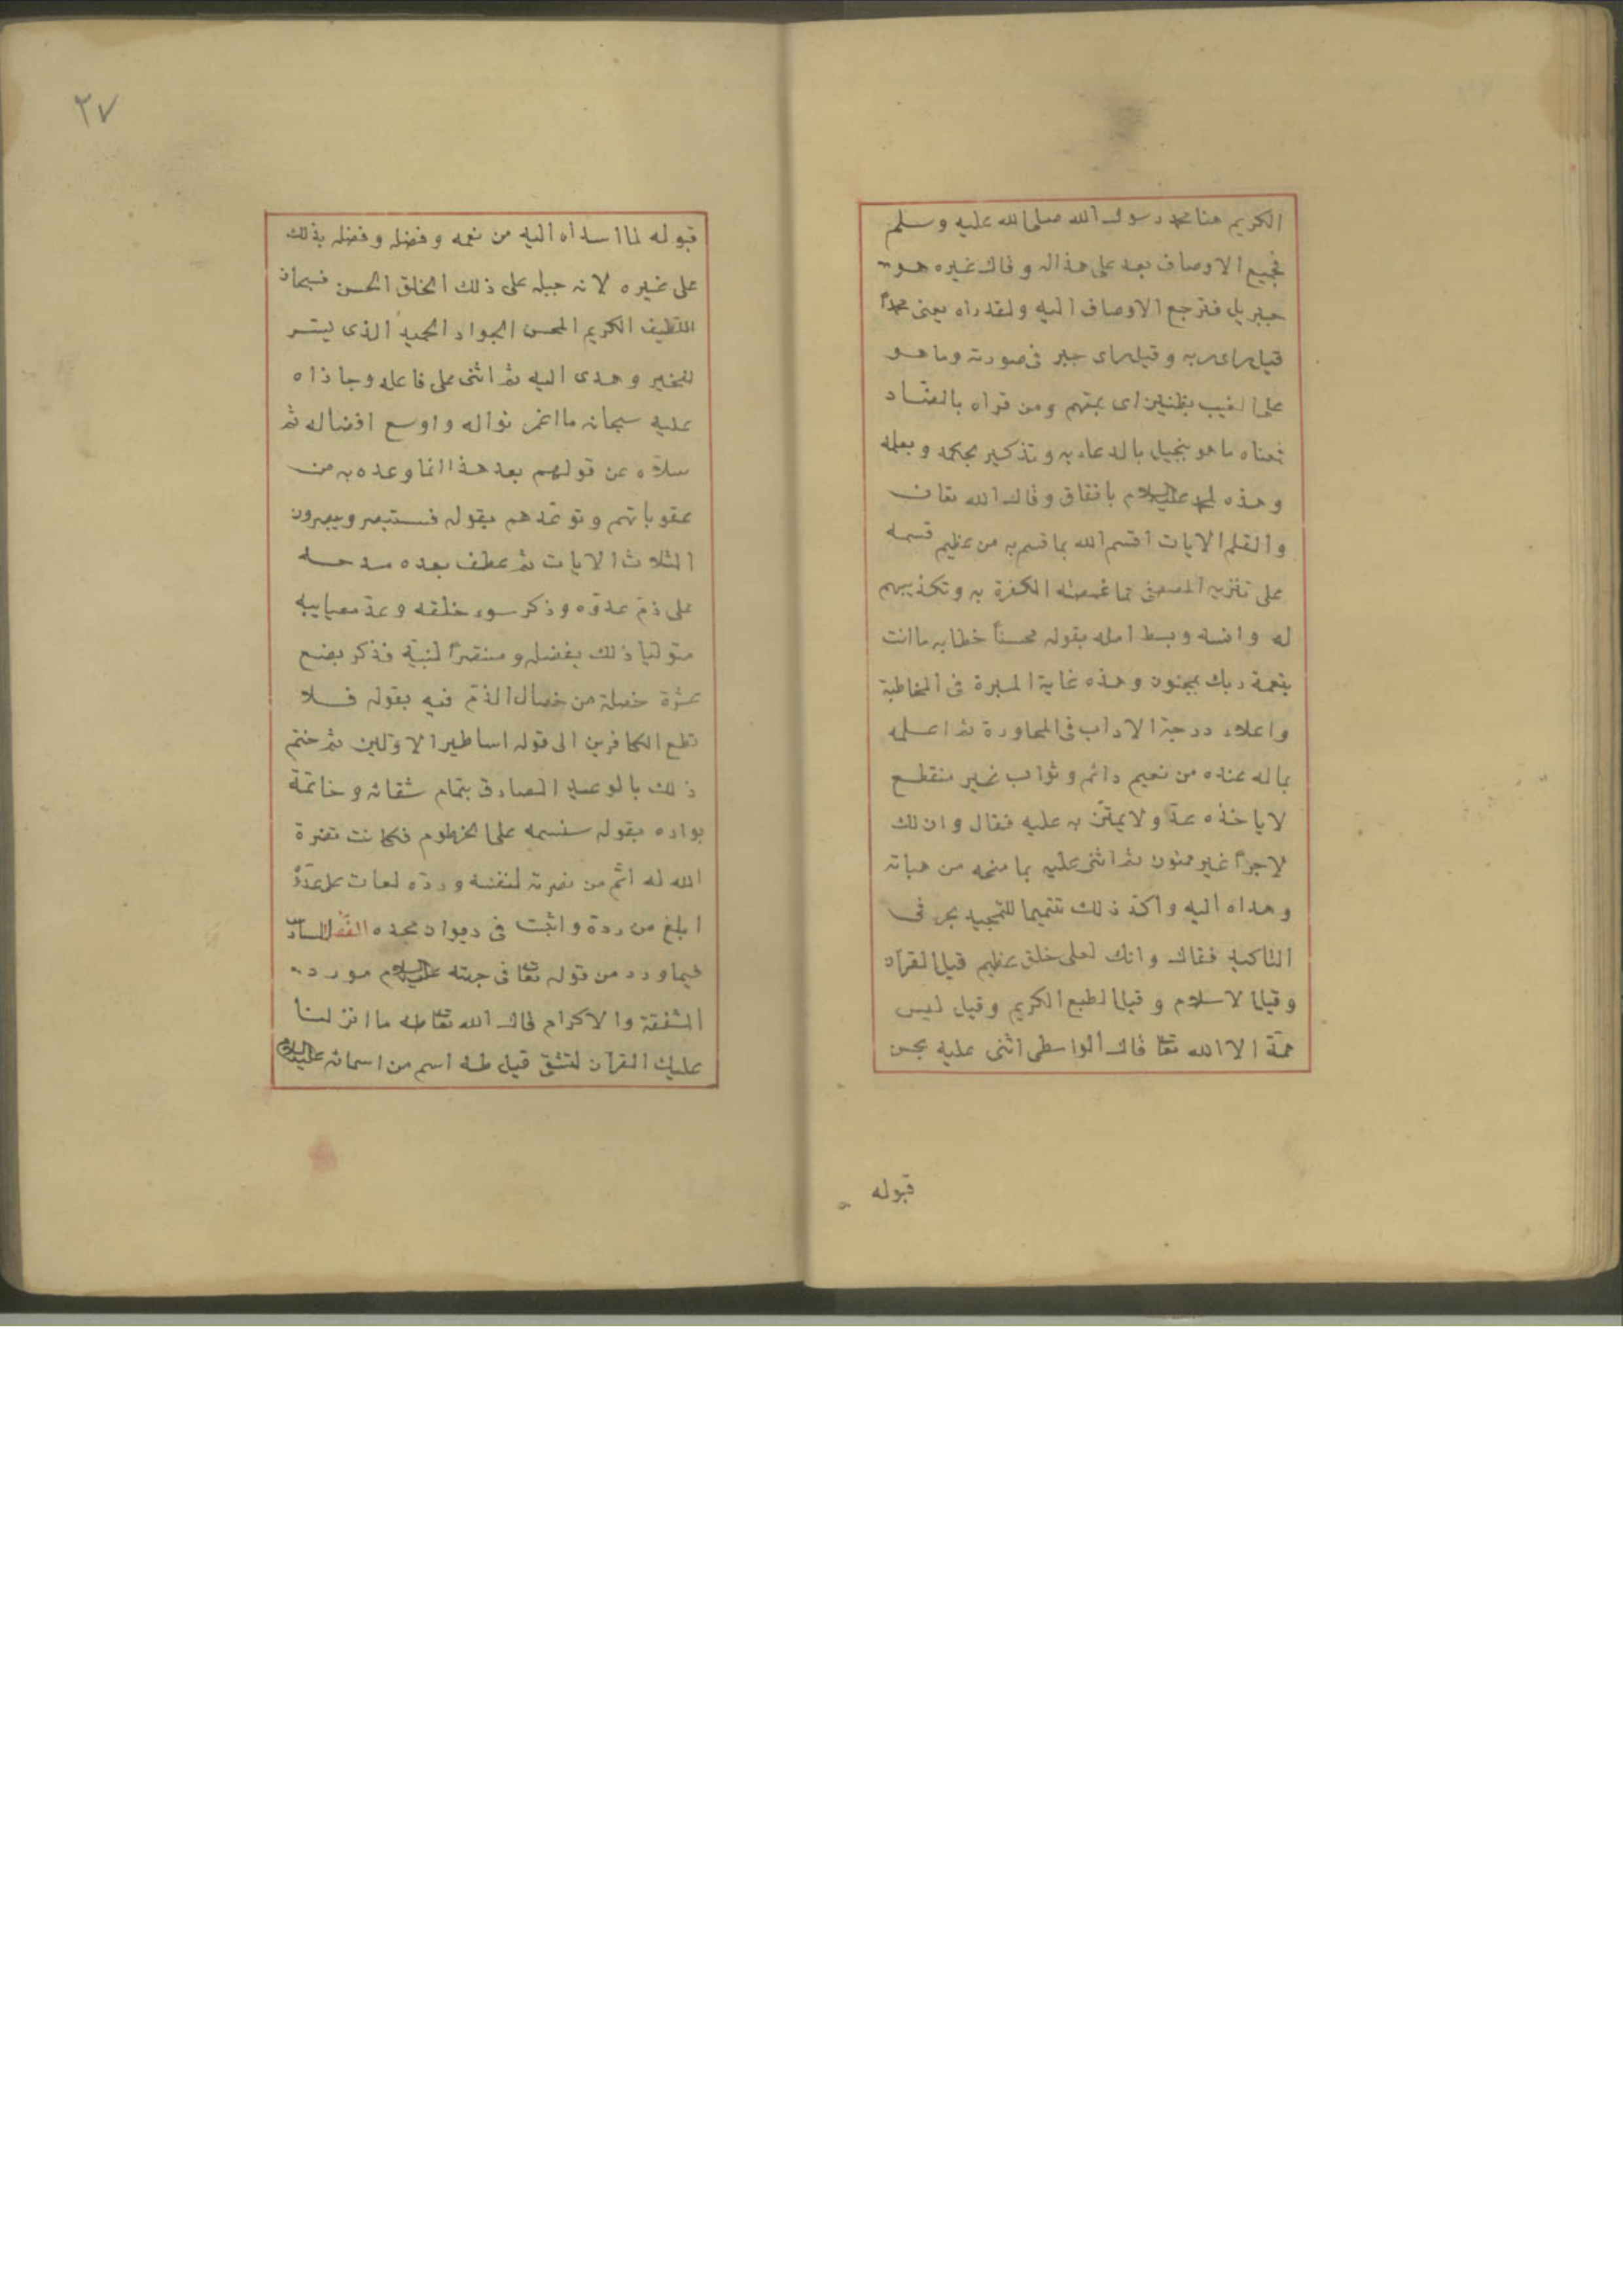 الكريم هنا محمد رسول الله صلى الله عليه وسلم
فجميع الاوصاف بعد على هذا له وقال غيره هو
جبريل فترجع الاوصاف اليه ولقد راه يعنى محمدا
قيل راى ربه وقيل راى جبر فى صورته وما هو
على الغيب بظنين اى بمتهم ومن قراه بالضاد
فمعناه ما هو ببخيل بالدعاء به وتذكير بحكمه وبعلمه
وهذه لمحمد عليه السلام باتفاق وقال الله تعا ن
والقلم الايات اقسم الله بما قسم به من عظيم قسمه
على تنزيه المصطفى مما غمصته الكفرة به وتكذيبهم
له وانسه وبسط امله بقوله محسناً خطابه ما انت
بنعمة ربك بمجنون وهذه غاية المبرة فى المخاطبة
واعلاء درجة الاداب فى المحاورة ثم اعلمه
بما له عنده من نعيم دائم وثواب غير منقطع
لا ياخذه عد ولا يمتن به عليه فقال وان لك
لاجراً غير ممنون ثم اثنى عليه بما منحه من هباته
وهداه اليه واكد ذلك تتميما للتمجيد بحرفى
التاكيد فقال وانك لعلى خلق عظيم قيل القرآن
وقيل الاسلام وقيل الطبع الكريم وقيل ليس
همة الا الله تعا قال الواسطى اثنى عليه بحسن
قبوله
٢٧
قبوله لما اسداه اليه من نعمه وفضله وفضله بذلك
على غيره لانه جبله على ذلك الخلق الحسن فسبحان
اللطيف الكريم المحسن الجواد الحميد الذى يسر
للخير وهدى اليه ثم اثنى على فاعله وجازاه
عليه سبحانه ما اغمر نواله واوسع افضاله ثم
سلاه عن قولهم بعد هذا انما وعده به من
عقوباتهم وتوعدهم بقوله فستبصر ويبصرون
الثلاث الايات ثم عطف بعده مدحه
على ذم عدوه وذكر سوء خلقه وعد معاييبه
متوليا ذلك بفضله ومنتصراً لنبيه فذكر بضع
عشرة خصلة من خصال الذم فيه بقوله فلا
تطع الكافرين الى قوله اساطير الاولين ثم ختم
ذلك بالوعيد الصادق بتمام شقائه وخاتمة
بواره بقوله سنسمه على الخرطوم فكانت نصرة
الله له اتم من نصرته لنفسه ورده تعا على عدوه
ابلغ من رده واثبت فى ديوان مجده الفصل السادس
فيما ورد من قوله تعا فى جهته عليه السلام مورد
الشفقة والاكرام قال الله تعا طه ما انزلنا
عليك القرآن لتشقى قيل طه اسم من اسمائه عليه السلام